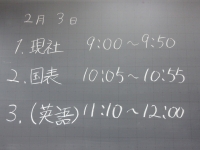 2月 3日
1. 現社 9:00～9:50
2. 国表 10:05～10:55
3. (英語) 11:10～12:00